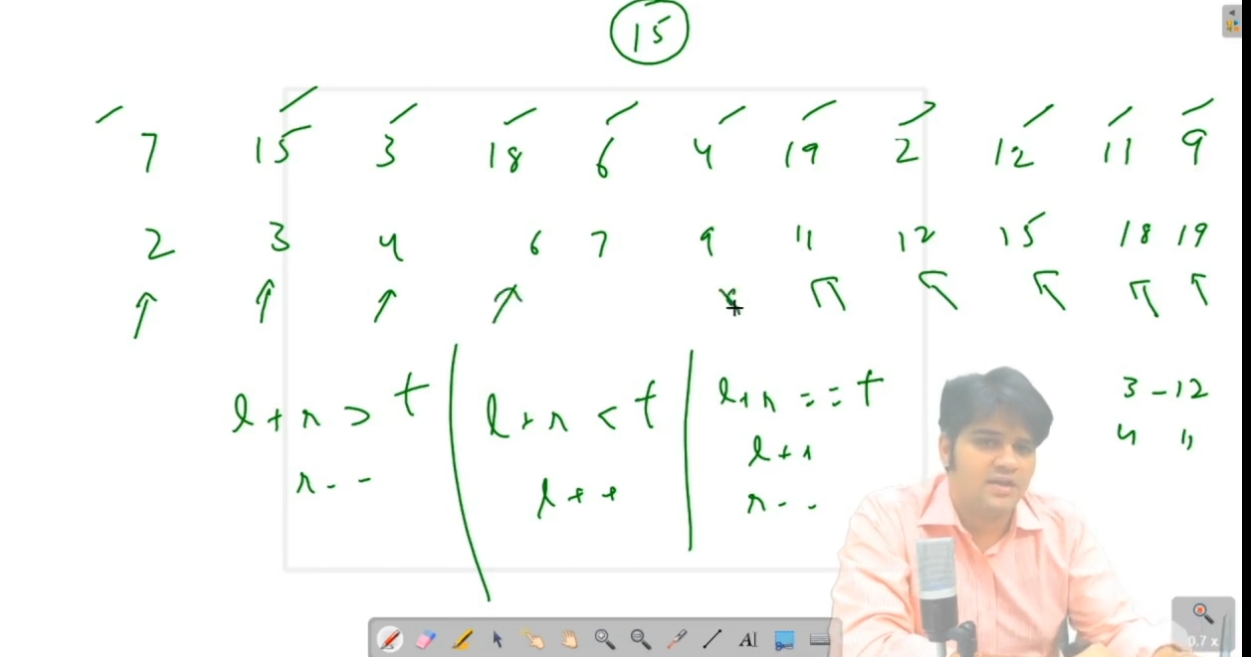 15
7 15 3 18 6 4 19 2 12 11 9
2 3 4 6 7 9 11 12 15 18 19
l+r > t
r--
l+r < t
l++
l+r == t
l++
r--
3 - 12
4 11
AI
0.7 x